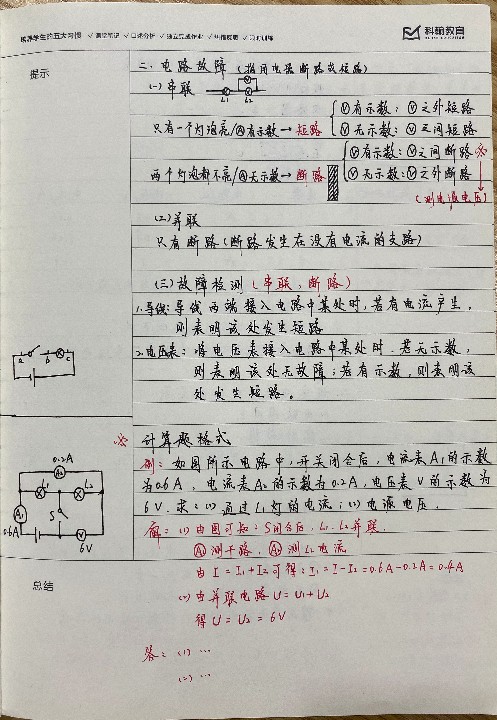 培养学生的五大习惯 ✓课堂笔记 ✓口述分析 ✓独立完成作业 ✓纠错整理 ✓限时训练
科翰教育
提示
二、电路故障(指用电器断路或短路)
(一)串联
L1 L2
V
只有一个灯泡亮/Ⓐ有示数→短路
Ⓥ有示数:Ⓥ之外短路
Ⓥ无示数:Ⓥ之间短路
两个灯泡都不亮/Ⓐ无示数→断路
Ⓥ有示数:Ⓥ之间断路※
Ⓥ无示数:Ⓥ之外断路
(测电源电压)
(二)并联
只有断路(断路发生在没有电流的支路)
(三)故障检测(串联,断路)
1.导线:导线两端接入电路中某处时,若有电流产生,
则表明该处发生短路
2.电压表:将电压表接入电路中某处时,若无示数,
则表明该处无故障;若有示数,则表明该
处发生短路。
a b c
※ 计算题格式
例:如图所示电路中,开关闭合后,电流表A1的示数
为0.6A,电流表A2的示数为0.2A,电压表V的示数为
6V.求:(1)通过L1灯的电流;(2)电源电压.
0.2A
A2
L1 L2
A1 S
0.6A V
6V
解:(1)由图可知:S闭合后,L1、L2并联.
Ⓐ1测干路,Ⓐ2测L2电流
由I=I1+I2可得:I1=I-I2=0.6A-0.2A=0.4A
(2)由并联电路U=U1+U2
得U=U2=6V
总结
答:(1)…
(2)…